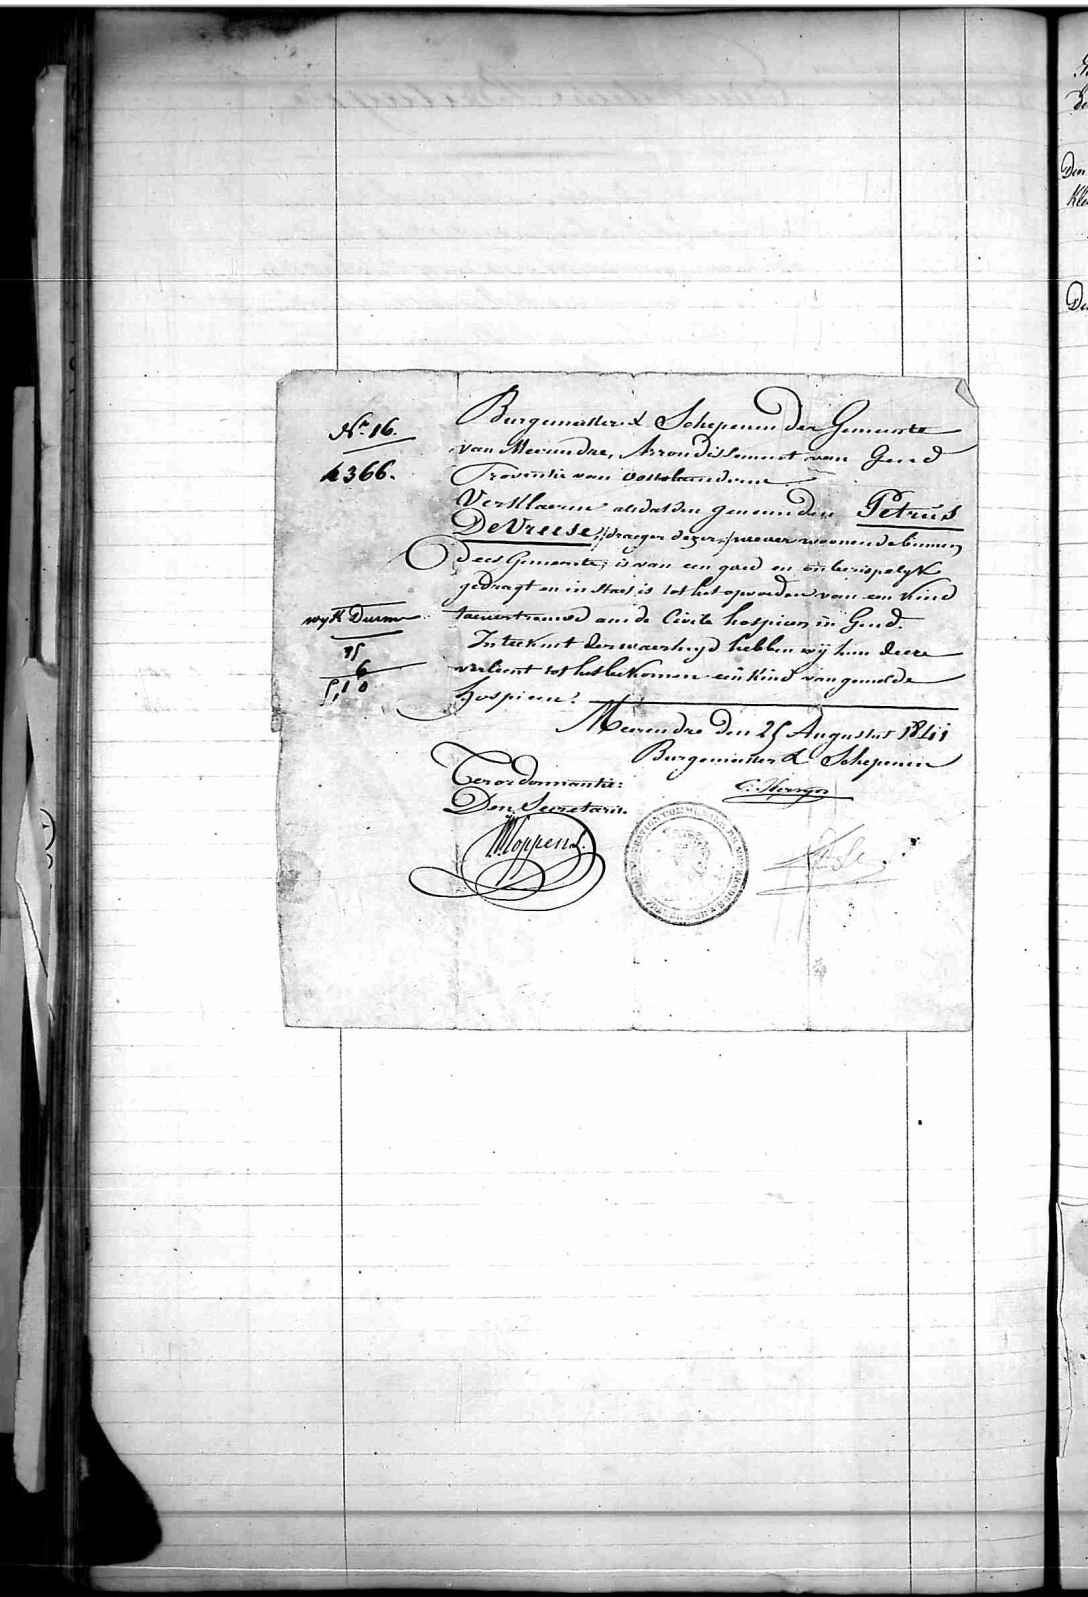 N.o 16.
4366.
Burgemeester & Schepenen der Gemeente
van Meerendre, Arrondissement van Gend
Provintie van Oostvlanderen
Verklaeren als dat den genaemden Petrus
De Vreese, draeger dezer, wever woonende binnen
dees Gemeente, is van een goed en onberispelyk
gedragt en in staet is tot het opvoeden van een kind
toevertrouwd aen de Civile hospicen in Gend.
In teeken der waerheyd hebben wij hun deeze
verleent tot het bekomen een kind van gemelde
hospicen.
wyk Durme
15
6
Meerendre den 25 Augustus 1841
Burgemeester & Schepenen
Ter ordonnantie:
Den Secretaris.